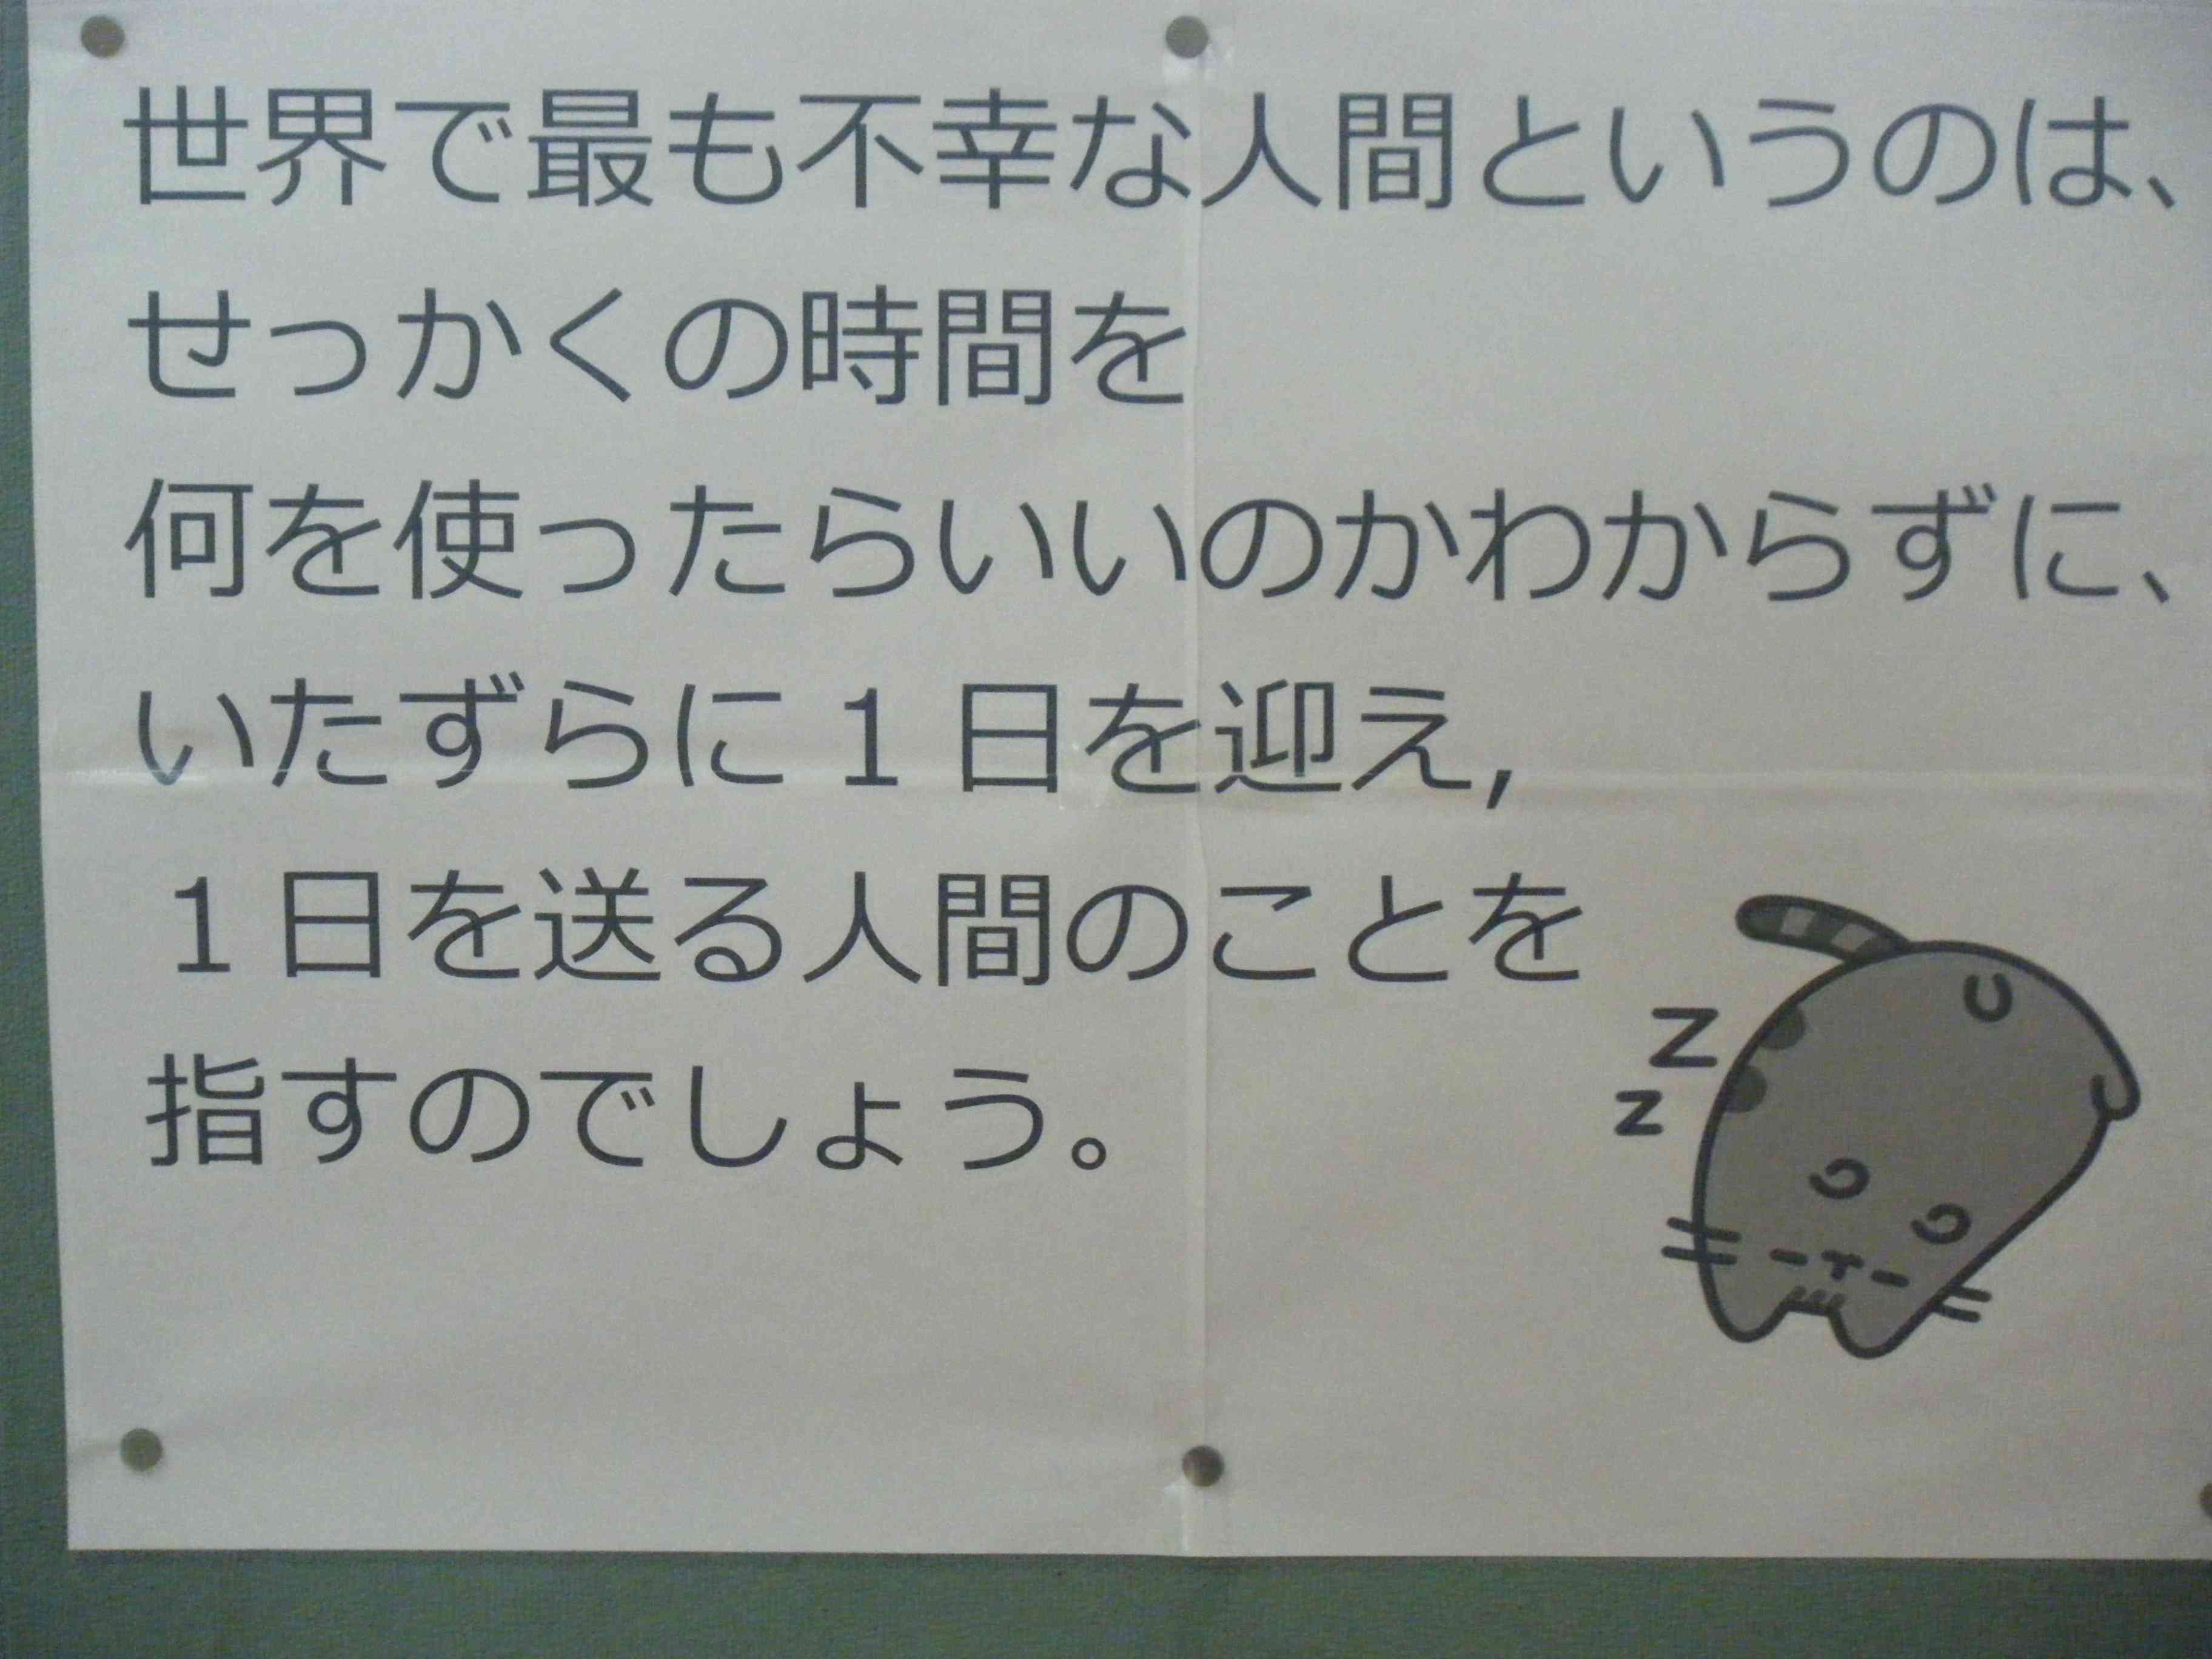 世界で最も不幸な人間というのは、
せっかくの時間を
何を使ったらいいのかわからずに、
いたずらに１日を迎え,
１日を送る人間のことを
指すのでしょう。
Z
z